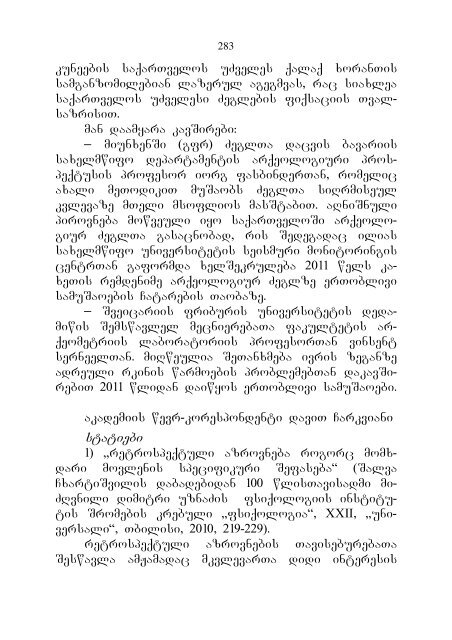 283
კუნეების საქართველოს უძველეს ქალაქ ხორანთის
სამგანზომილებიან ლაზერულ აგეგმვას, რაც სიახლეა
საქართველოს უძველესი ძეგლების ფიქსაციის თვალ-
საზრისით.
მან დაამყარა კავშირები:
– მიუნხენში (გფრ) ძეგლთა დაცვის ბავარიის
სახელმწიფო დეპარტამენტის არქეოლოგიური პროს-
პექტუსის პროფესორ იორგ ფასბინდერთან, რომელიც
ახალი მეთოდიკით მუშაობს ძეგლთა სიღრმისეულ
კვლევაზე მთელი მსოფლიოს მასშტაბით. აღნიშნული
პიროვნება მოწვეული იყო საქართველოში არქეოლო-
გიურ ძეგლთა გასაცნობად, რის შედეგადაც ილიას
სახელმწიფო უნივერსიტეტის სეისმური მონიტორინგის
ცენტრთან გაფორმდა ხელშეკრულება 2011 წელს კა-
ხეთის რემდენიმე არქეოლოგიურ ძეგლზე ერთობლივი
სამუშაოების ჩატარების თაობაზე.
– შვეიცარიის ფრიბურის უნივერსიტეტის დედა-
მიწის შემსწავლელ მეცნიერებათა ფაკულტეტის არ-
ქეომეტრიის ლაბორატორიის პროფესორთან ვინსენტ
სერნეელთან. მიღწეულია შეთანხმება ივრის ზეგანზე
ადრეული რკინის წარმოების პრობლემებთან დაკავში-
რებით 2011 წლიდან დაიწყოს ერთობლივი სამუშაოები.
აკადემიის წევრ-კორესპონდენტი დავით ჩარკვიანი
სტატიები
1) „რეტროსპექტული აზროვნება როგორც მომხ-
დარი მოვლენის სპეციფიკური შეფასება“ (შალვა
ჩხარტიშვილის დაბადებიდან 100 წლისთავისადმი მი-
ძღვნილი დიმიტრი უზნაძის ფსიქოლოგიის ინსტიტუ-
ტის შრომების კრებული „ფსიქოლოგია“, XXII, „უნი-
ვერსალი“, თბილისი, 2010, 219-229).
რეტროსპექტული აზროვნების თავისებურებათა
შესწავლა ამჟამადაც მკვლევართა დიდი ინტერესის